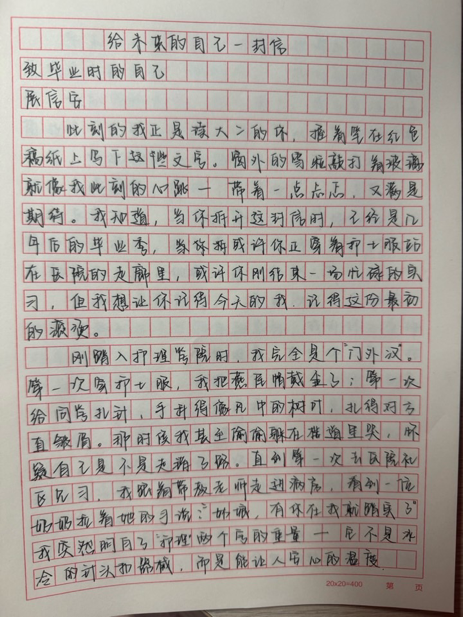 给未来的自己一封信
致毕业时的自己
展信安
此刻的我正是读大二的你，握着笔在红色
稿纸上写下这些文字。窗外的雪粒敲打着玻璃
就像我此刻的心跳一带着一点点忐，又满是
期待。我知道，当你拆开这封信时，已经是几
年后的毕业季，当你拆或许你正穿着护士服站
在医院的走廊里，或许你刚结束一场忙碌的实
习，但我想让你记得今天的我，记得这份最初
的滚烫。
刚踏入护理学院时，我完全是个"门外汉"。
第一次穿护士服，我把燕尾帽戴歪了；第一次
给同学扎针，手抖得像风中的树叶，扎得对方
直皱眉。那时候我甚至偷偷躲在楼道里哭，怀
疑自己是不是走错了路。直到第一次去医院社
区见习，我跟着带教老师走进病房，看到一位
奶奶拉着她的手说："姑娘，有你在我就踏实了"
我突然明白了"护理"两个字的重量一它不是冰
冷的针头和器械，而是能让人安心的温度
20×20=400 第 页